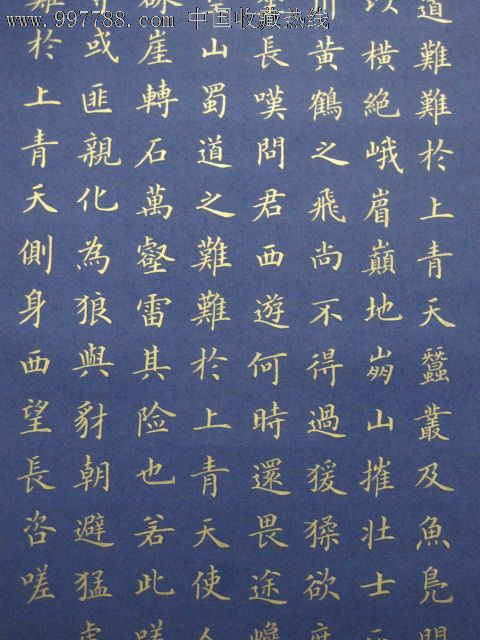 www.997788.com 中国收藏热线
道難難於上青天蠶叢及魚鳧
以橫絶峨眉巔地崩山摧壯士
黃鶴之飛尚不得過猨猱欲度
長嘆問君西遊何時還畏途
山蜀道之難難於上青天使人
崖轉石萬壑雷其险也若此嗟
或匪親化為狼與豺朝避猛虎
難於上青天側身西望長咨嗟